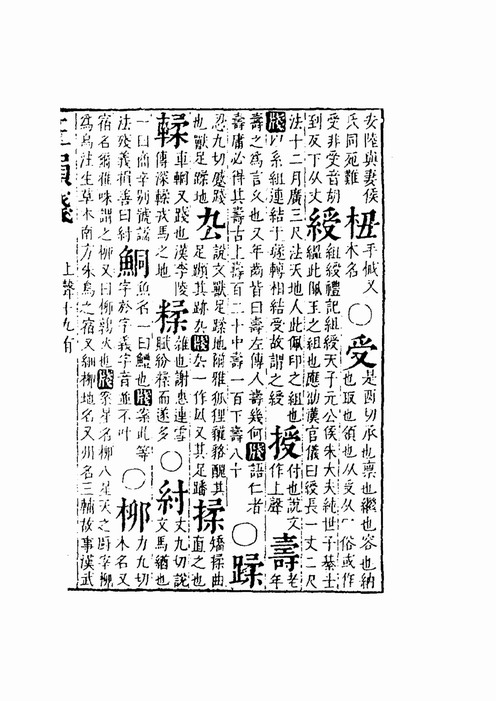 安陸與妻侯氏同死難杻手械又木名○受是酉切承也稟也繼也容也納也取也領也从受从冖俗或作
受非受音胡到反下从丈綬組綬禮記組綬天子元公侯朱大夫純世子綦士縕此佩玉之組也應劭漢官儀曰綬長一丈二尺
法十二月廣三尺法天地人此佩印之組也牋以系組連結于璲轉相結受故謂之綬授付也說文作上聲壽老年
壽之為言久也又年齒皆曰壽左傳人壽幾何牋語仁者壽庸必得其壽古上壽百二十中壽一百下壽八十○蹂
忍九切蹙踐也獸足蹂地厹說文獸足蹂地爾雅狐狸貒貉醜其足蹞其跡厹牋厹一作禸又其足蹯揉矯揉曲直之也
輮車輞又踐也漢李陵傳深輮戎馬之地糅雜也謝惠連雪賦紛糅而遂多○紂丈九切說文馬緧也
一曰商辛別號謚法殘義損善曰紂鮦魚名一曰鱧也牋案此等字於字義字音並不叶○柳力九切木名又
宿名爾雅咮謂之柳又曰柳鶉火也牋案星名柳八星天之厨宰柳為鳥注主草木南方朱鳥之宿又細柳地名又州名三輔故事漢武
正韻牋
上聲十九有